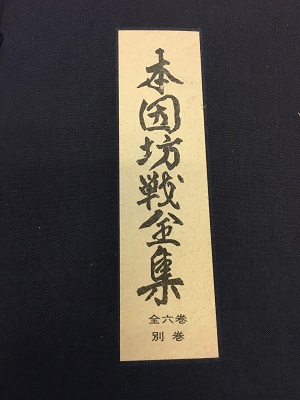 本因坊戦全集
全六巻
別巻